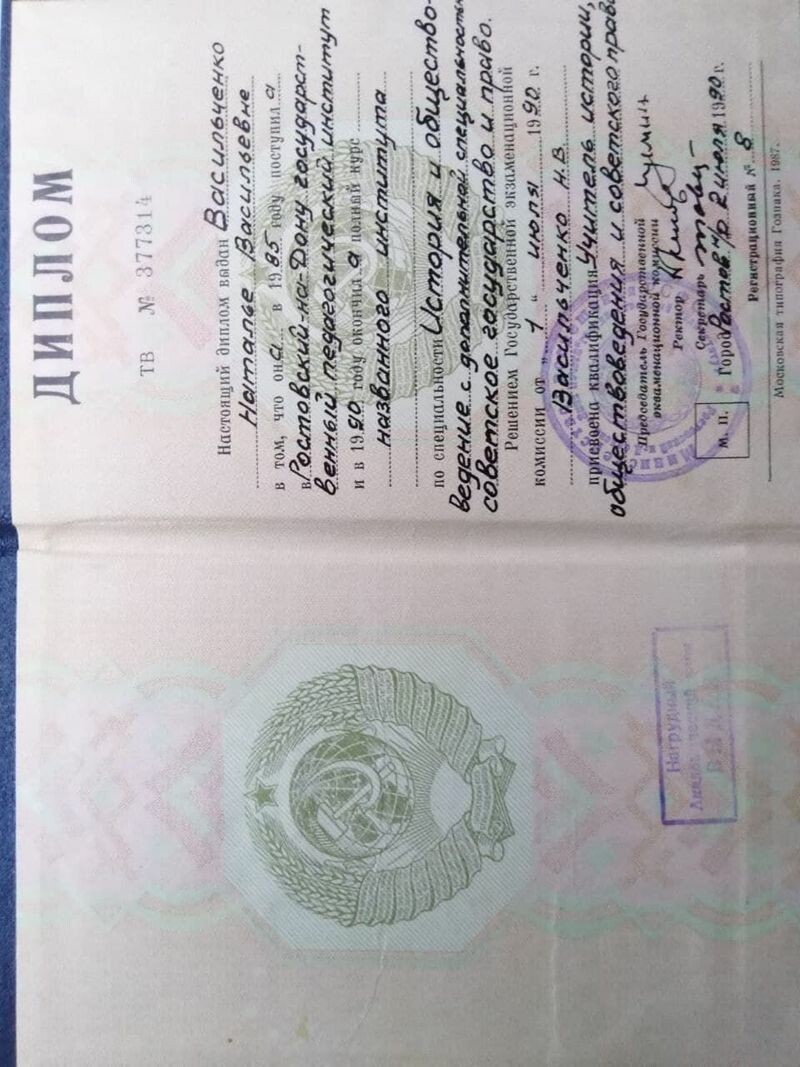 ДИПЛОМ
ТВ № 377314
Настоящий диплом выдан Васильченко
Наталье Васильевне
в том, что она в 1985 году поступила
в Ростовский-на-Дону государст-
венный педагогический институт
и в 1990 году окончила полный курс
названного института
по специальности История и общество-
ведение с дополнительной специальностью
советское государство и право.
Решением Государственной экзаменационной
комиссии от „1“ июля 1990 г.
Васильченко Н.В.
присвоена квалификация Учитель истории,
обществоведения и советского права
Председатель Государственной
экзаменационной комиссии
Ректор
Секретарь
М. П. Город Ростов н/Д 2 июля 1990 г.
Регистрационный № 8
Московская типография Гознака. 1987.
Нагрудный
знак
ВЫДАН